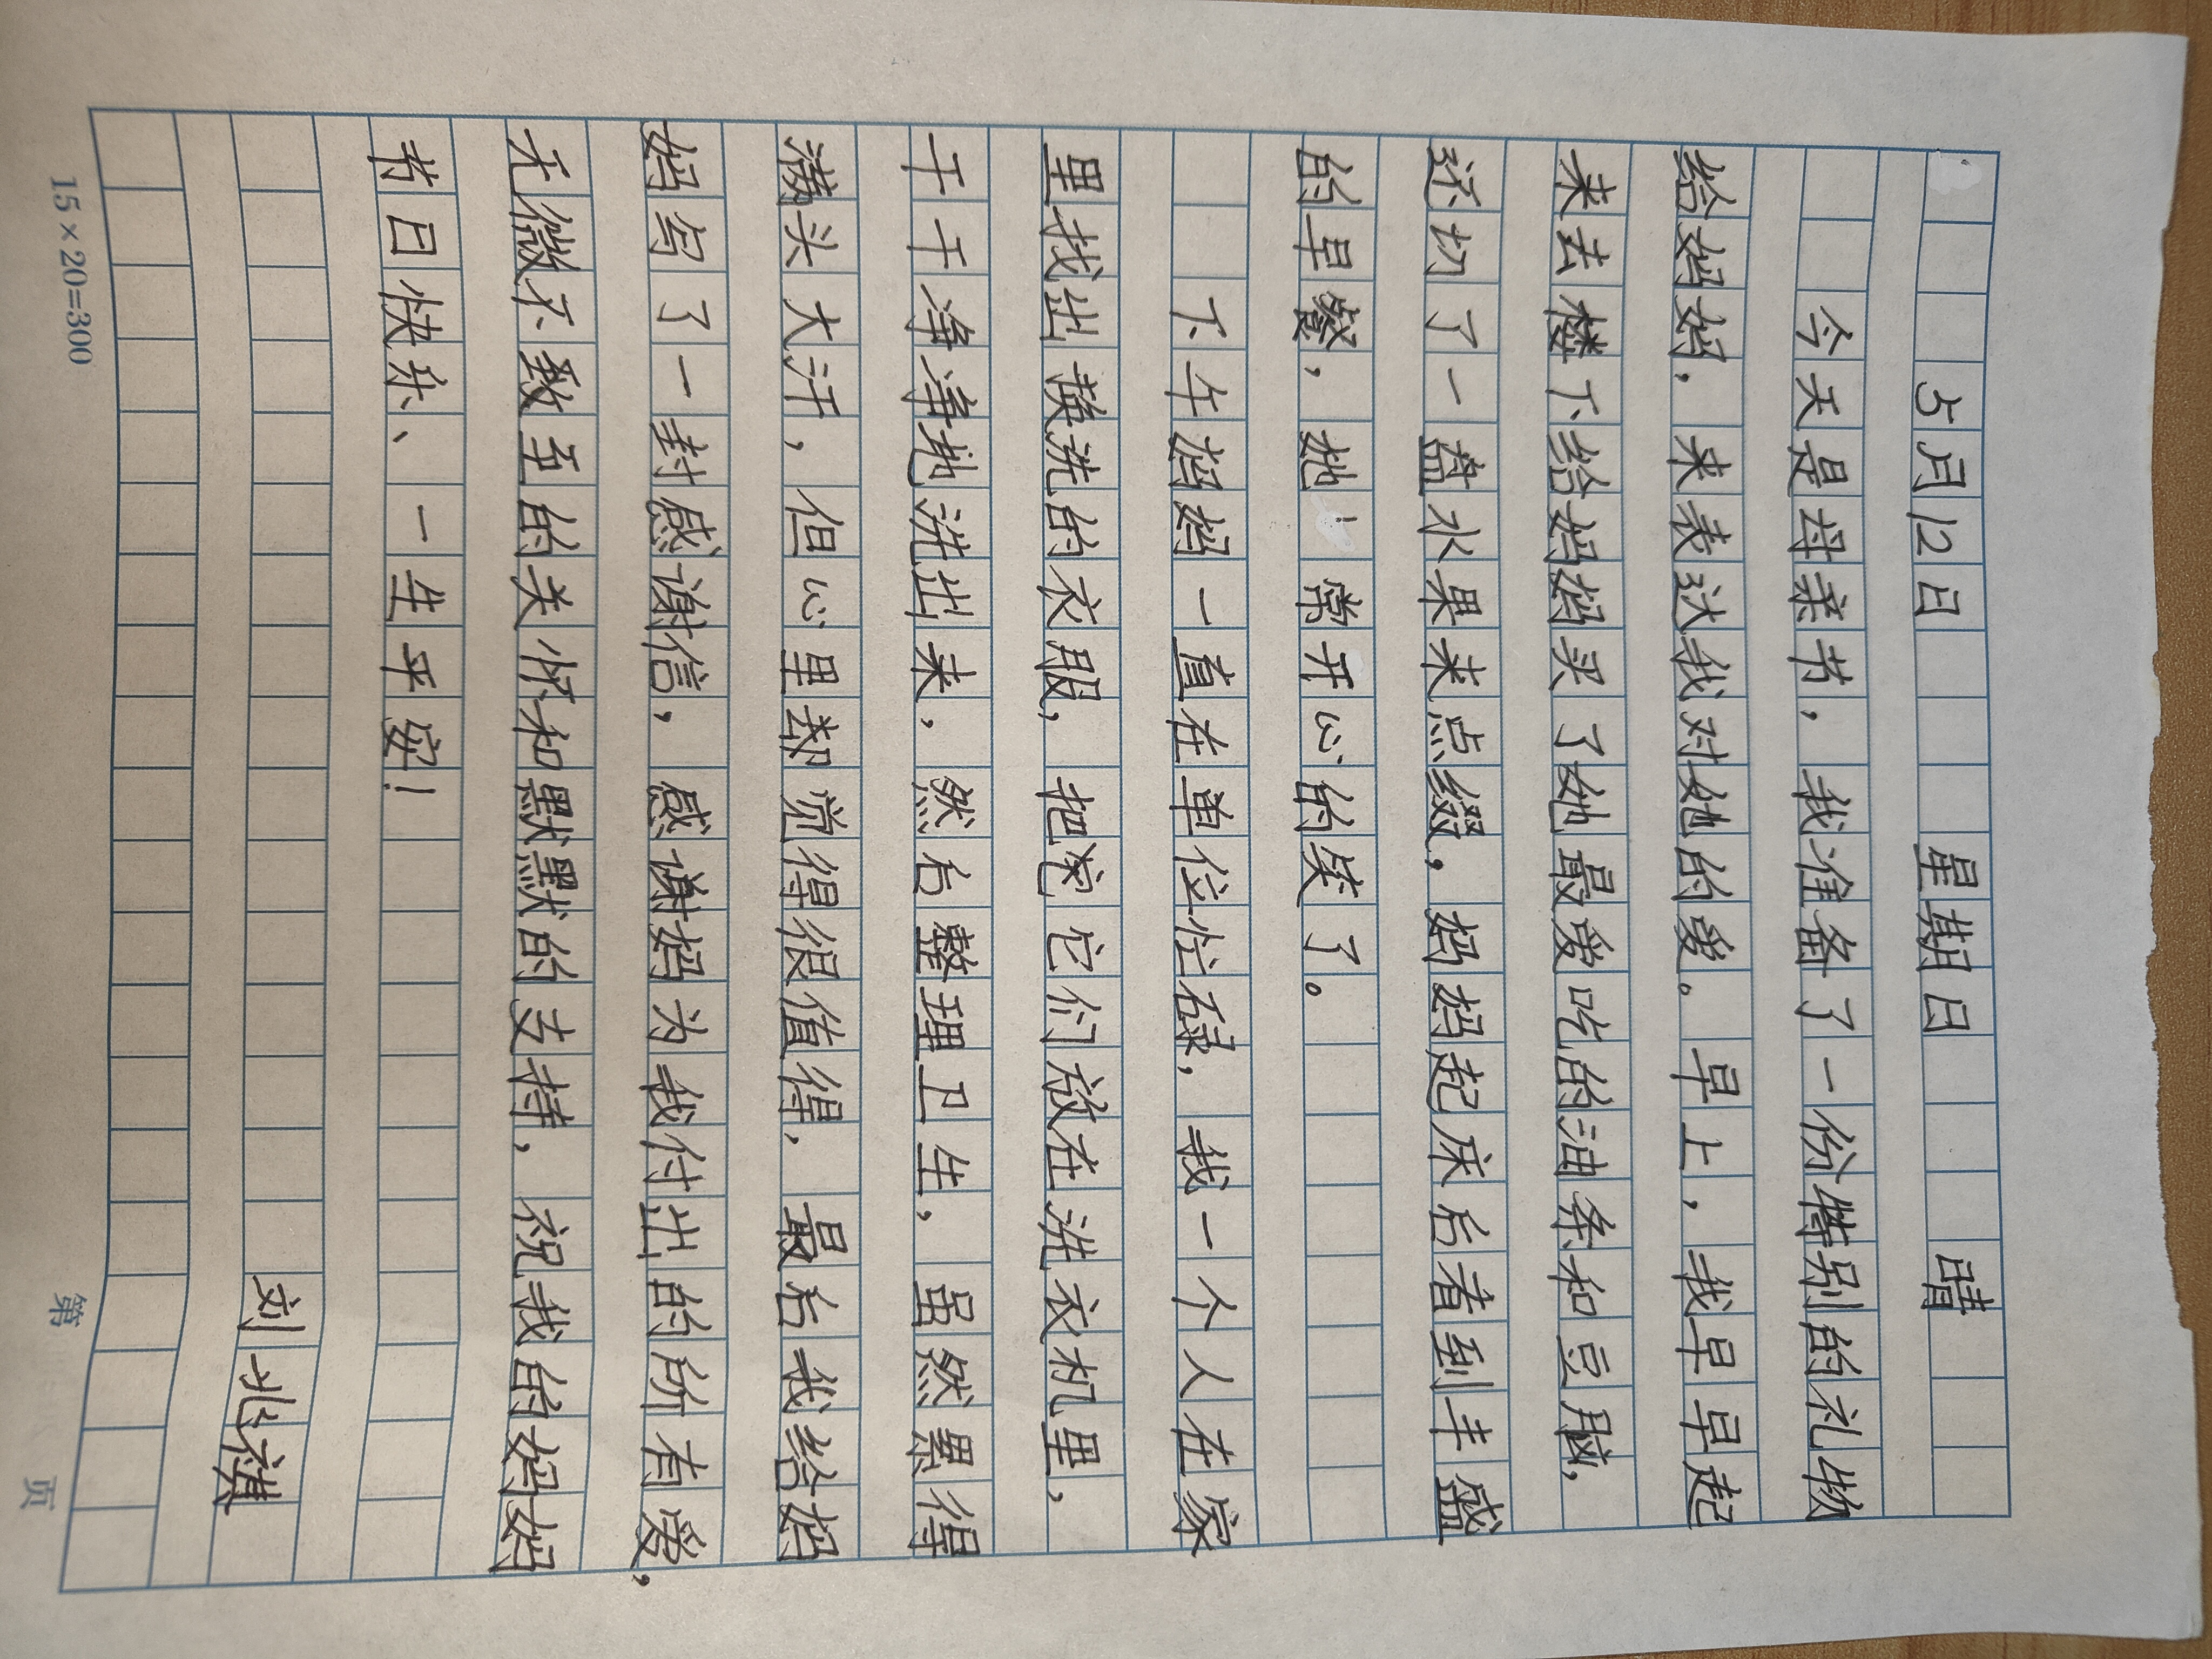 5月12日 星期日 晴
今天是母亲节，我准备了一份特别的礼物
给妈妈，来表达我对她的爱。早上，我早早起
来去楼下给妈妈买了她最爱吃的油条和豆脑，
还切了一盘水果来点缀，妈妈起床后看到丰盛
的早餐，她 常开心的笑了。
下午妈妈一直在单位忙碌，我一个人在家
里找出换洗的衣服，把它们放在洗衣机里，
干干净净地洗出来，然后整理卫生，虽然累得
满头大汗，但心里却觉得很值得，最后我给妈
妈写了一封感谢信，感谢妈为我付出的所有爱，
无微不致至的关怀和默默的支持，祝我的妈妈
节日快乐、一生平安！
刘兆祺
15×20=300
第 页